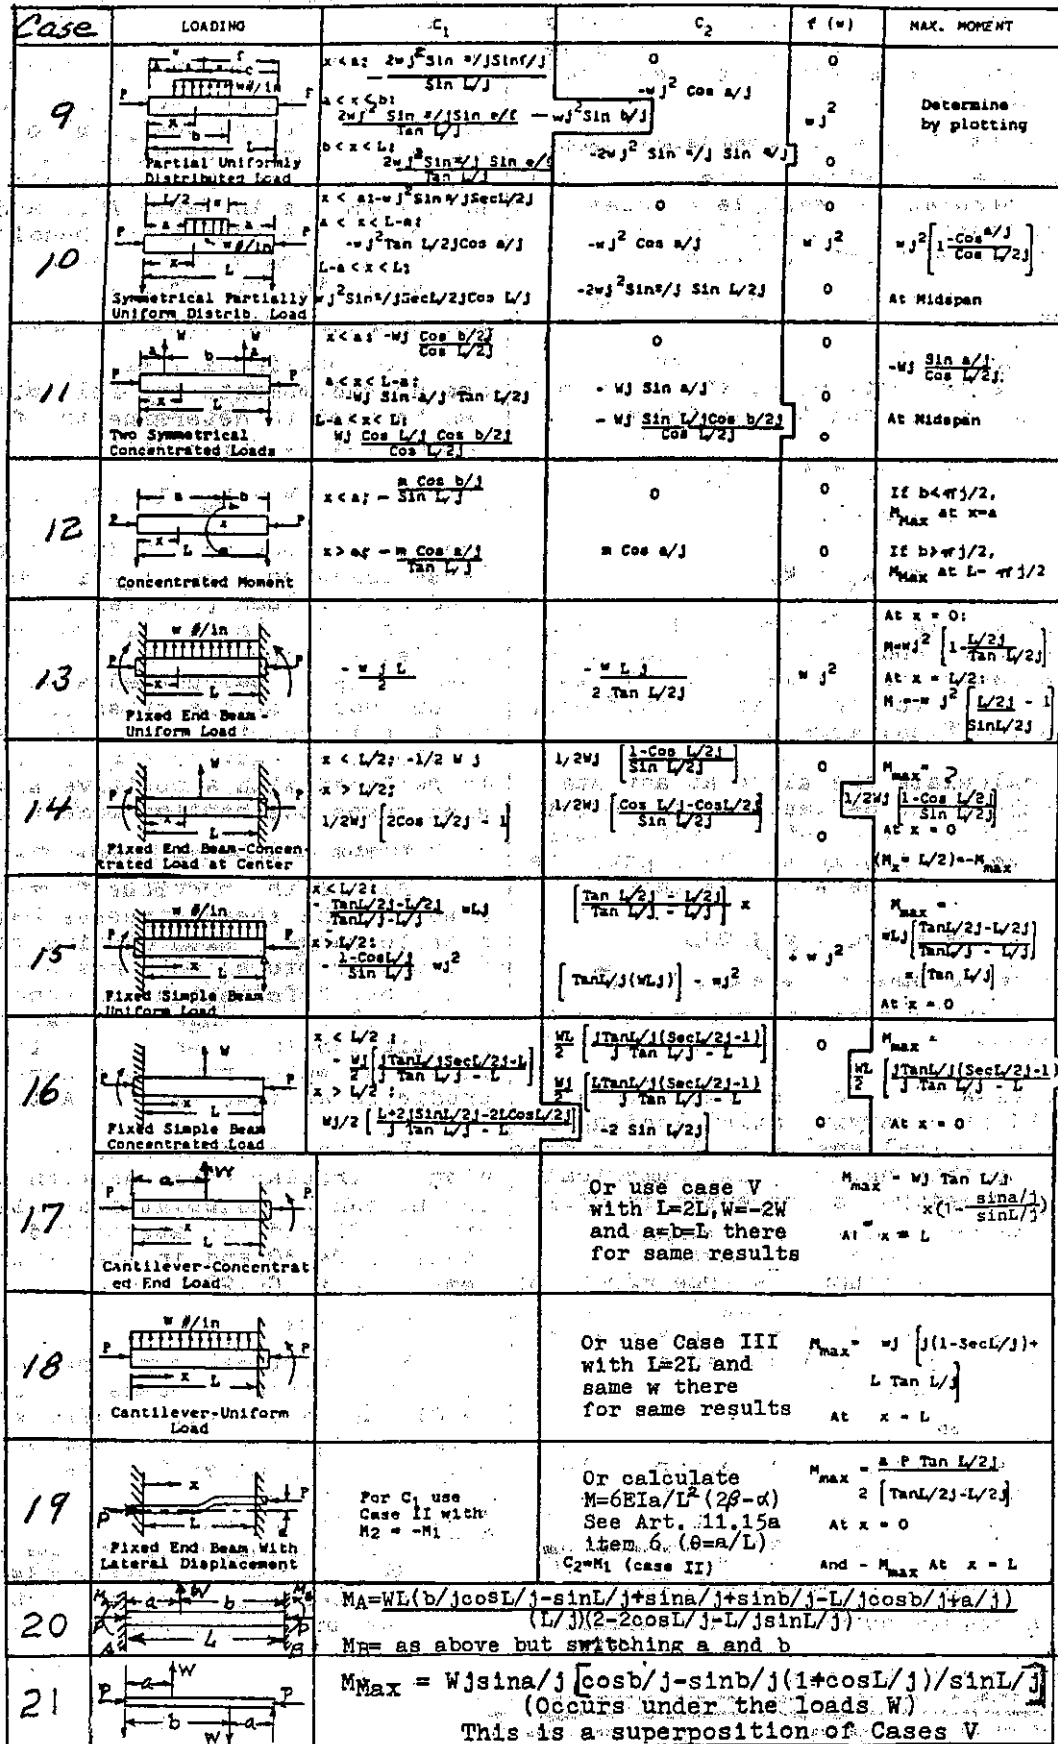 Case LOADING C₁ C₂ f (w) MAX. MOMENT
9
w #/in
P
x
b
L
Partial Uniformly
Distributed Load
x < a:
Sin L/j
a < x < b:
Tan L/j
- wj² Sin b/j
b < x < L:
Tan L/j
0
-wj² Cos a/j
0
wj²
0
Determine
by plotting
10
L/2
w #/in
P P
x
L
Symmetrical Partially
Uniform Distrib. Load
x < a: -wj² Sin a/j SecL/2j
a < x < L-a:
-wj² Tan L/2j Cos a/j
L-a < x < L:
wj² Sin a/j SecL/2j Cos L/j
0
-wj² Cos a/j
-2wj² Sin a/j Sin L/2j
0
w j²
0
wj² [1 - Cos a/j / Cos L/2j]
At Midspan
11
W W
a b a
P P
x
L
Two Symmetrical
Concentrated Loads
x < a: -Wj Cos b/2j / Cos L/2j
a < x < L-a:
-Wj Sin a/j Tan L/2j
L-a < x < L:
Wj Cos L/j Cos b/2j / Cos L/2j
0
- Wj Sin a/j
- Wj Sin L/j Cos b/2j / Cos L/2j
0
0
0
-Wj Sin a/j / Cos L/2j
At Midspan
12
a b
P P
x
L
m
Concentrated Moment
x < a: - m Cos b/j / Sin L/j
x > a: - m Cos a/j / Tan L/j
0
m Cos a/j
0
0
If b<πj/2,
M MAX at x=a
If b>πj/2,
M MAX at L- πj/2
13
w #/in
P P
x
L
Fixed End Beam -
Uniform Load
- w j L / 2
- w L j / 2 Tan L/2j
w j²
At x = 0:
M=wj² [1- L/2j / Tan L/2j]
At x = L/2:
M =-w j² [L/2j / SinL/2j - 1]
14
W
P P
x
L
Fixed End Beam-Concen-
trated Load at Center
x < L/2: -1/2 W j
x > L/2:
1/2Wj [2Cos L/2j - 1]
1/2Wj [1-Cos L/2j / Sin L/2j]
1/2Wj [Cos L/j-CosL/2j / Sin L/2j]
0
0
M max = ?
1/2Wj [1-Cos L/2j / Sin L/2j]
At x = 0
(M x = L/2)=-M max
15
w #/in
P P
x
L
Fixed Simple Beam
Uniform Load
x < L/2:
- TanL/2j-L/2j / TanL/j-L/j wLj
x > L/2:
- 1-CosL/j / Sin L/j wj²
[Tan L/2j - L/2j / Tan L/j - L/j] x
[TanL/j(WLj)] - wj²
+ w j²
M max =
wLj [TanL/2j-L/2j / TanL/j - L/j]
x [Tan L/j]
At x = 0
16
W
P P
x
L
Fixed Simple Beam
Concentrated Load
x < L/2 :
- Wj/2 [jTanL/jSecL/2j-L / j Tan L/j - L]
x > L/2 :
Wj/2 [L+2jSinL/2j-2LCosL/2j / j Tan L/j - L]
WL/2 [jTanL/j(SecL/2j-1) / j Tan L/j - L]
Wj/2 [LTanL/j(SecL/2j-1) / j Tan L/j - L
-2 Sin L/2j]
0
0
M max =
WL/2 [jTanL/j(SecL/2j-1) / j Tan L/j - L]
At x = 0
17
a W
P P
x
L
Cantilever-Concentrat
ed End Load
Or use case V
with L=2L,W=-2W
and a=b=L there
for same results
M max = Wj Tan L/j
x(1- sina/j / sinL/j)
At x = L
18
w #/in
P P
x
L
Cantilever-Uniform
Load
Or use Case III
with L=2L and
same w there
for same results
M max = wj [j(1-SecL/j)+
L Tan L/j]
At x = L
19
x
P P
L
a
Fixed End Beam With
Lateral Displacement
For C₁ use
Case II with
M₂ = -M₁
Or calculate
M=6EIa/L²(2β-α)
See Art. 11.15a
item 6 (θ=a/L)
C₂=M₁ (case II)
M max = a P Tan L/2j / 2 [TanL/2j-L/2j]
At x = 0
And - M max At x = L
20
a W b
P P
A L B
MA=WL(b/jcosL/j-sinL/j+sina/j+sinb/j-L/jcosb/j+a/j)
(L/j)(2-2cosL/j-L/jsinL/j)
MB= as above but switching a and b
21
a W
P P
b a
W
MMax = Wjsina/j[cosb/j-sinb/j(1+cosL/j)/sinL/j]
(Occurs under the loads W)
This is a superposition of Cases V